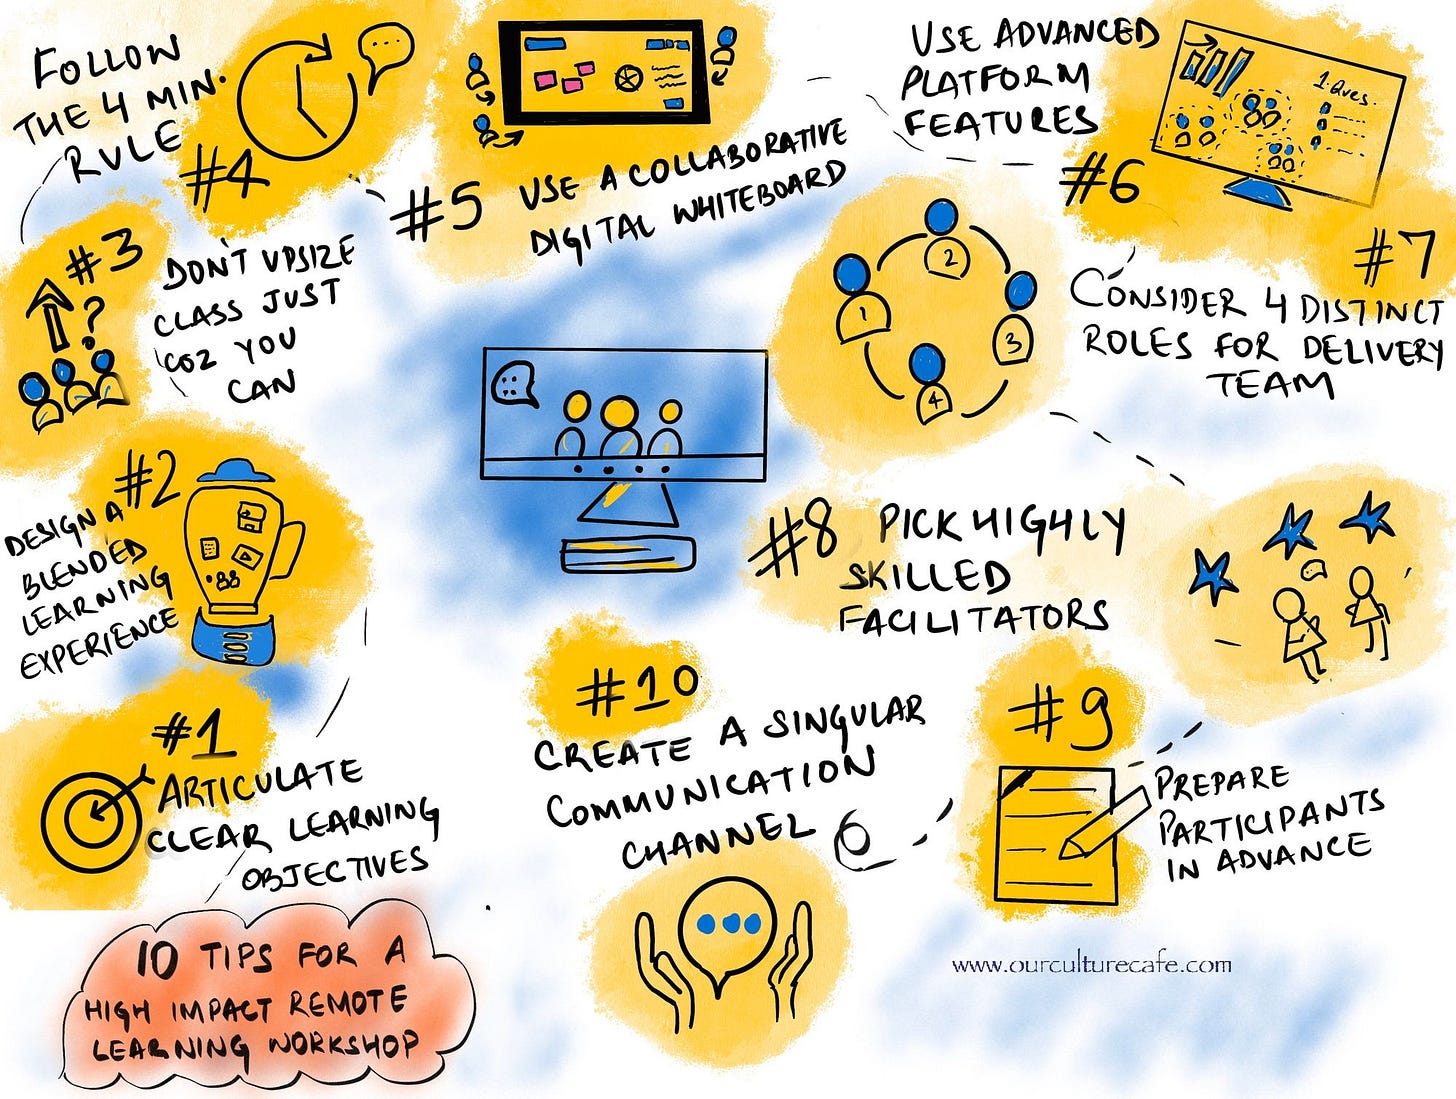 10 TIPS FOR A
HIGH IMPACT REMOTE
LEARNING WORKSHOP
#1
ARTICULATE
CLEAR LEARNING
OBJECTIVES
#2
DESIGN A
BLENDED
LEARNING
EXPERIENCE
#3
DON'T UPSIZE
CLASS JUST
COZ YOU
CAN
?
FOLLOW
THE 4 MIN.
RULE
#4
#5 USE A COLLABORATIVE
DIGITAL WHITEBOARD
USE ADVANCED
PLATFORM
FEATURES
#6
1. Ques.
#7
CONSIDER 4 DISTINCT
ROLES FOR DELIVERY
TEAM
1
2
3
4
#8 PICK HIGHLY
SKILLED
FACILITATORS
#9
PREPARE
PARTICIPANTS
IN ADVANCE
#10
CREATE A SINGULAR
COMMUNICATION
CHANNEL
www.ourculturecafe.com